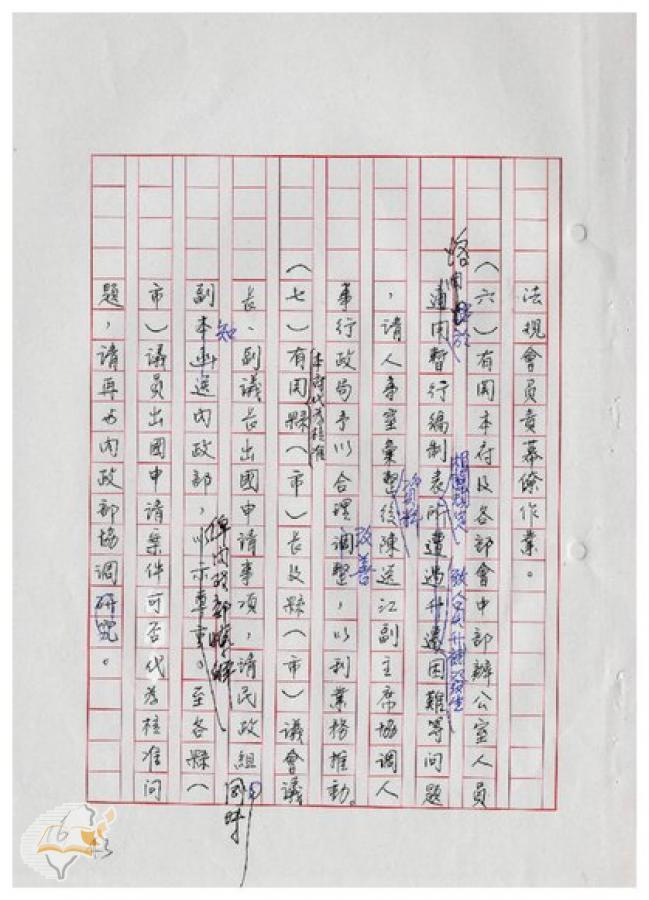 法規會負責幕僚作業。
（六）有関本府及各部會中部辦公室人員
適用暫行編制表所遭遇升遷困難等問題
，請人事室彙整後陳送江副主席協調人
事行政局予以合理調整，以利業務推動。
改善
（七）有関縣（市）長及縣（市）議會議
本府代為核准
長、副議長出國申請事項，請民政組
同時
副本函送內政部，以示尊重。至各縣（
知
俾內政部瞭解
市）議員出國申請案件可否代為核准問
題，請再與內政部協調研究。
16